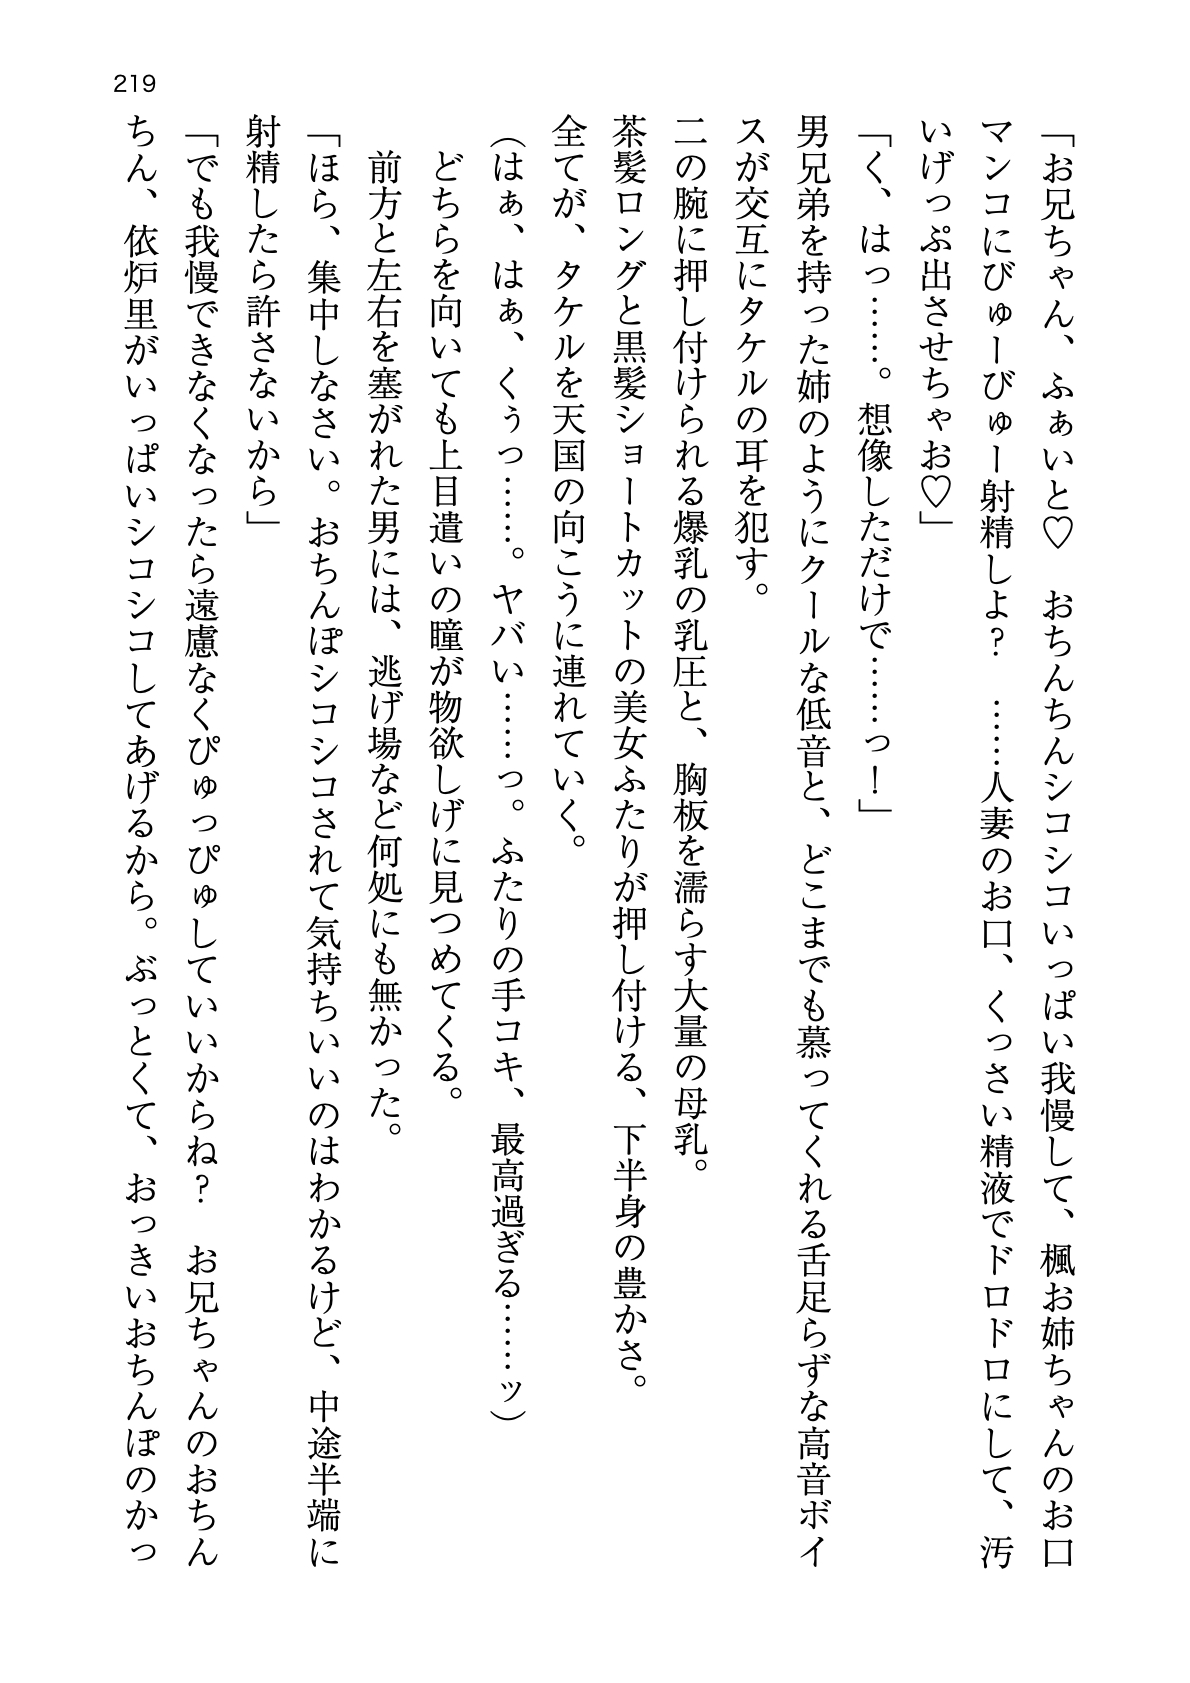 219
「お兄ちゃん、ふぁいと♡　おちんちんシコシコいっぱい我慢して、楓お姉ちゃんのお口
マンコにびゅーびゅー射精しよ？　……人妻のお口、くっさい精液でドロドロにして、汚
いげっぷ出させちゃお♡」
「く、はっ……。想像しただけで……っ！」
男兄弟を持った姉のようにクールな低音と、どこまでも慕ってくれる舌足らずな高音ボイ
スが交互にタケルの耳を犯す。
二の腕に押し付けられる爆乳の乳圧と、胸板を濡らす大量の母乳。
茶髪ロングと黒髪ショートカットの美女ふたりが押し付ける、下半身の豊かさ。
全てが、タケルを天国の向こうに連れていく。
（はぁ、はぁ、くぅっ……。ヤバい……っ。ふたりの手コキ、最高過ぎる……ッ）
　どちらを向いても上目遣いの瞳が物欲しげに見つめてくる。
　前方と左右を塞がれた男には、逃げ場など何処にも無かった。
「ほら、集中しなさい。おちんぽシコシコされて気持ちいいのはわかるけど、中途半端に
射精したら許さないから」
「でも我慢できなくなったら遠慮なくぴゅっぴゅしていいからね？　お兄ちゃんのおちん
ちん、依炉里がいっぱいシコシコしてあげるから。ぶっとくて、おっきいおちんぽのかっ